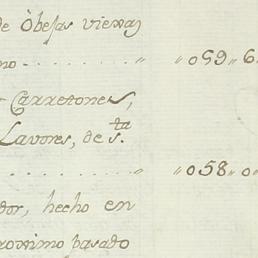 de Obejas viexas
no . . . . . . . . . „ 059 „ 6
Carretones,
Lavores, de s.ta
. . . . . . . . . „ 058 „ 0
dor, hecho en
roximo pasado